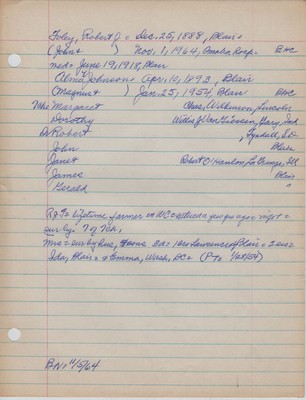 Foley, Robert J = Dec. 25, 1888, Blair =
(John + ) Nov. 1, 1964, Omaha, Hosp = B+C
med = June 19, 1918, Blair
Alma Johnson = Apr. 10, 1893, Blair
(Magnus + ) Jan. 25, 1954, Blair B+C
Margaret Chas. Wilkinson, Lincoln
Dorothy Willis J. Gary, Ind
Robert Tyndall, S.D.
John Blair
Janet Robert O'Hanlon, La Grange, Ill
James Blair
Gerald "
RJF = Lifetime farmer in WC = retired a few yrs ago =
sur by: 7 of 7 ch,
Mrs = sur by hus, = 2 srs =
Ida, Blair = & Emma, Wash, DC = (PT = 1/28/54)
BN = 11/5/64